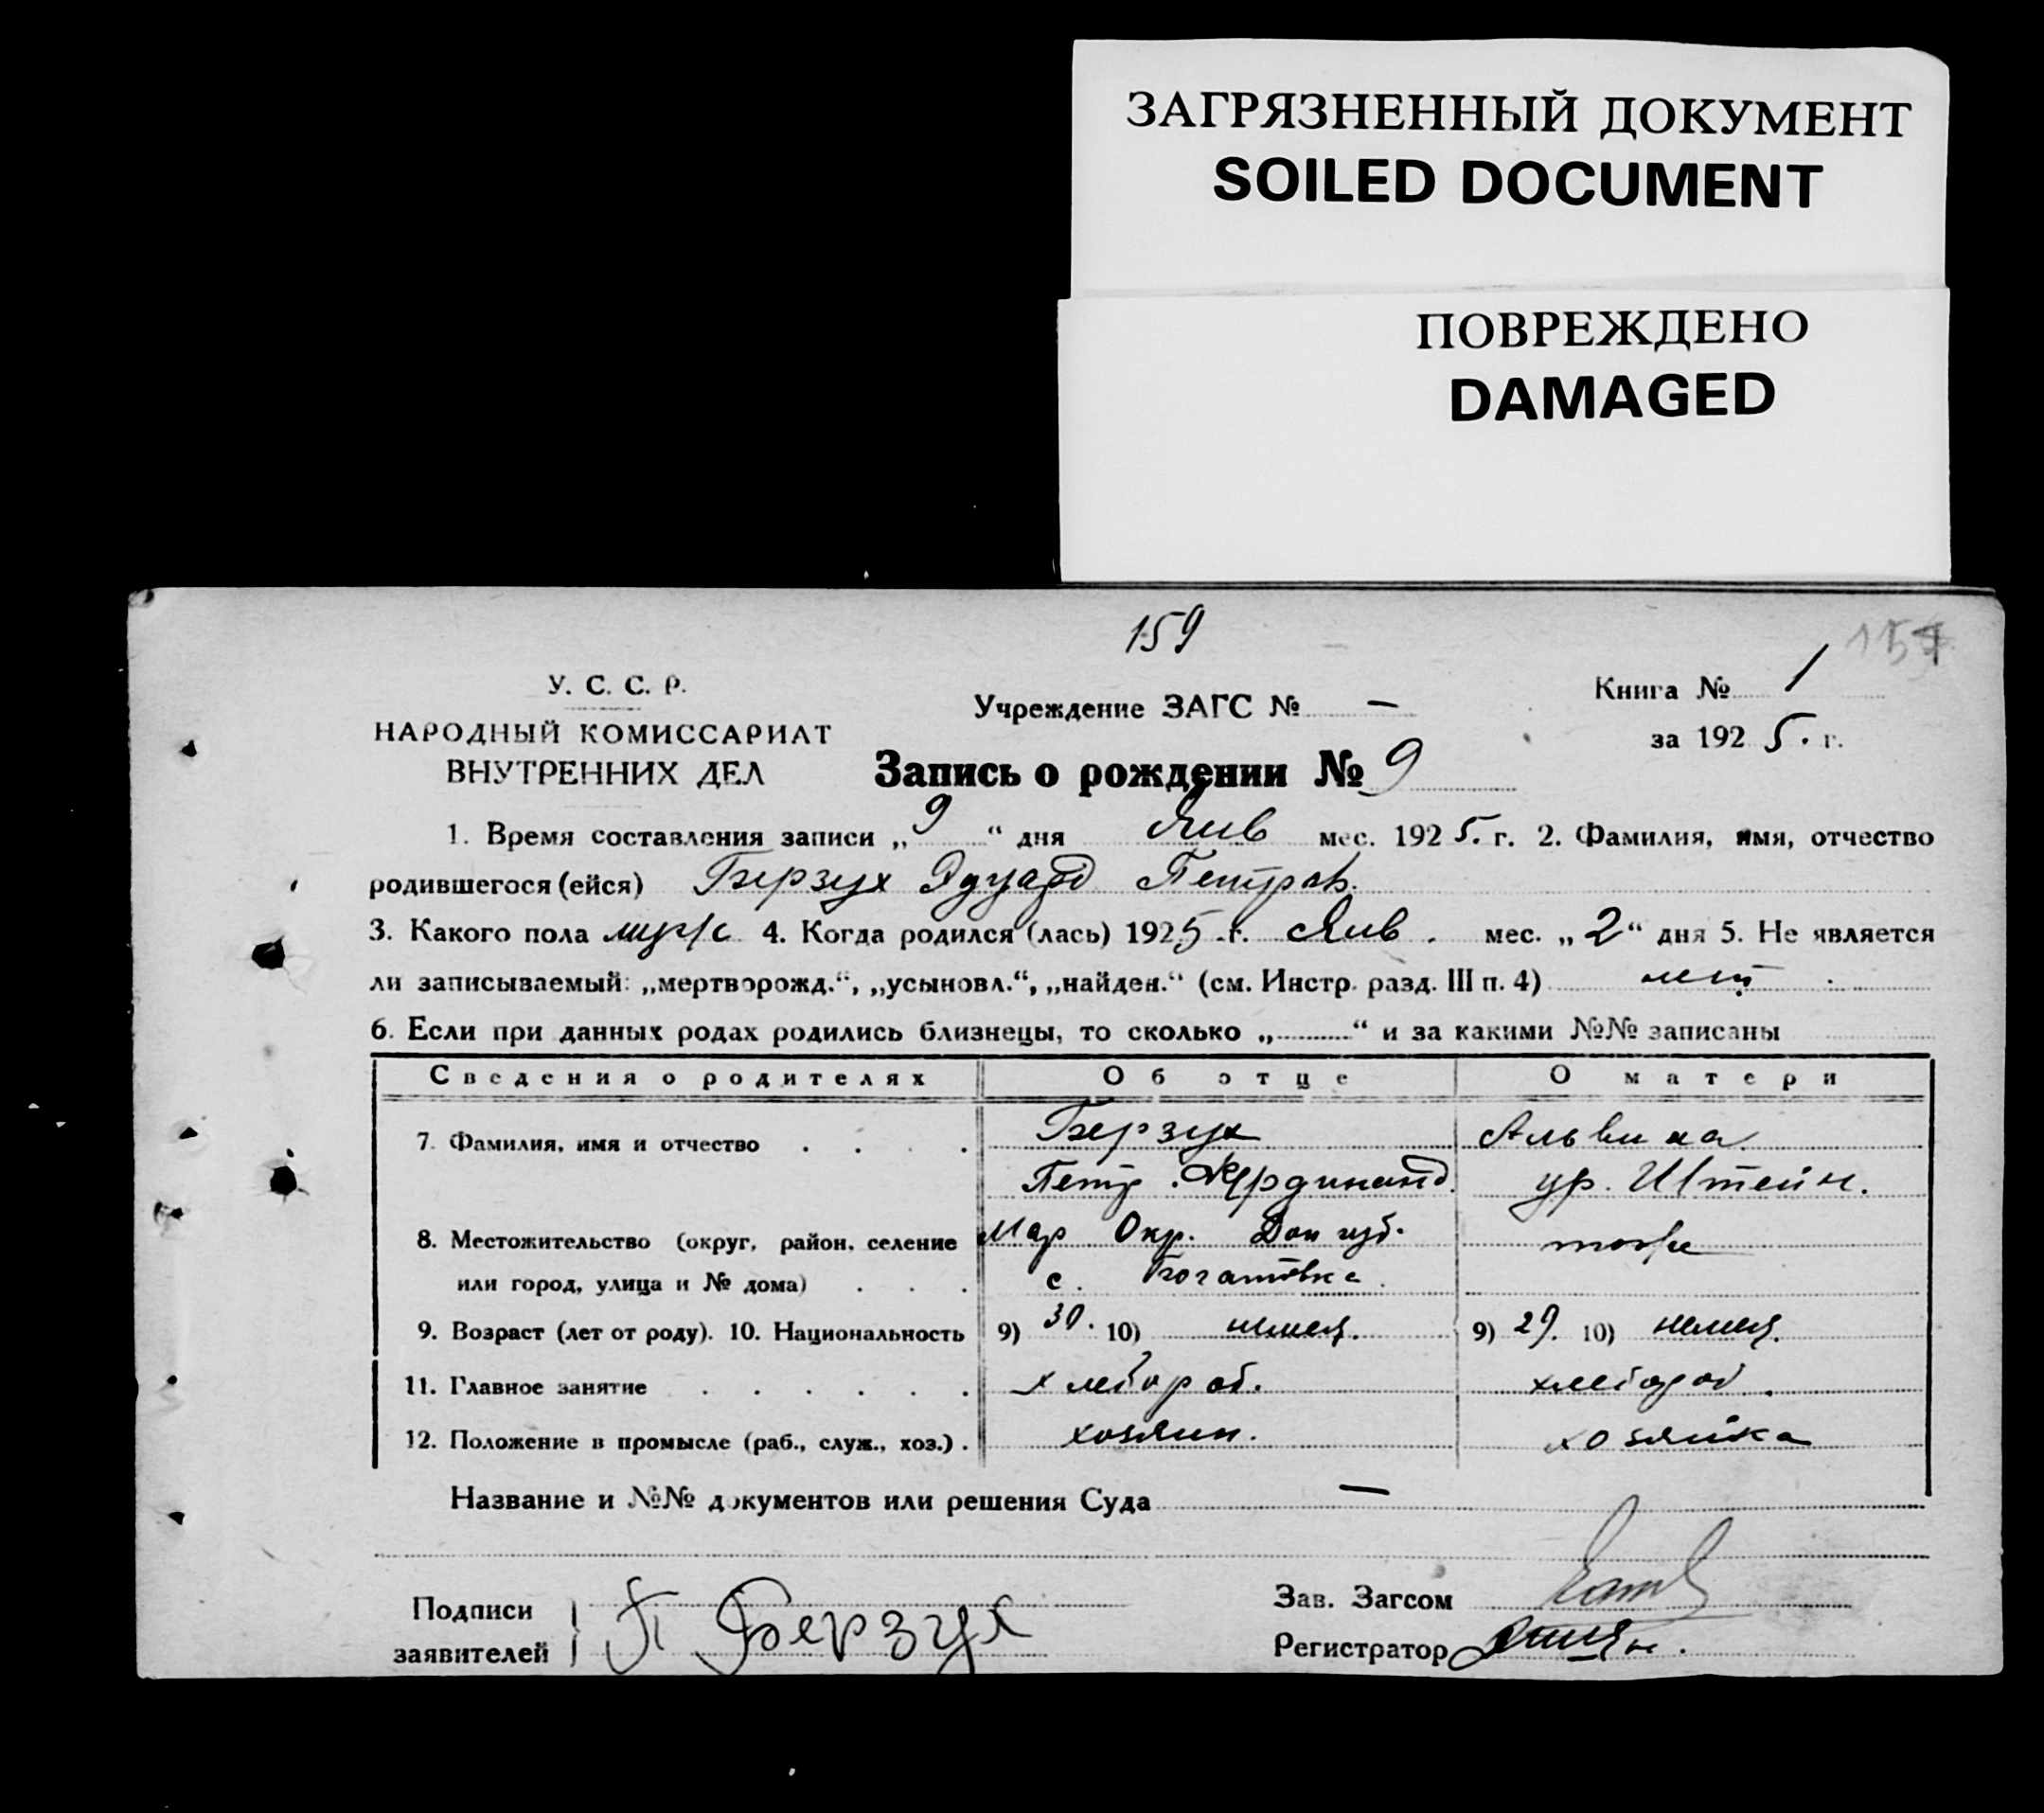 ЗАГРЯЗНЕННЫЙ ДОКУМЕНТ
SOILED DOCUMENT
ПОВРЕЖДЕНО
DAMAGED
159
У. С. С. Р.
НАРОДНЫЙ КОМИССАРИАТ
ВНУТРЕННИХ ДЕЛ
Учреждение ЗАГС № —
Книга № 1
за 1925. г.
Запись о рождении № 9
1. Время составления записи „ 9 “ дня Янв мес. 1925. г. 2. Фамилия, имя, отчество
родившегося (ейся) Берзух Эдуард Петров.
3. Какого пола муж 4. Когда родился (лась) 1925 г. Янв. мес. „ 2 “ дня 5. Не является
ли записываемый: „мертворожд.“, „усыновл.“, „найден.“ (см. Инстр. разд. III п. 4) нет
6. Если при данных родах родились близнецы, то сколько „..........“ и за какими №№ записаны
Сведения о родителях Об отце О матери
7. Фамилия, имя и отчество . . . . Берзух Альвина
Петр Фердинанд. ур. Штейн.
8. Местожительство (округ, район, селение Мар Окр. Дон губ. тоже
или город, улица и № дома) . . . с.
9. Возраст (лет от роду). 10. Национальность 9) 30. 10) немец. 9) 29. 10) немец.
11. Главное занятие . . . . . . хлебороб. хлебороб.
12. Положение в промысле (раб., служ., хоз.) . хозяин. хозяйка
Название и №№ документов или решения Суда —
Подписи
заявителей П Берзух
Зав. Загсом
Регистратор